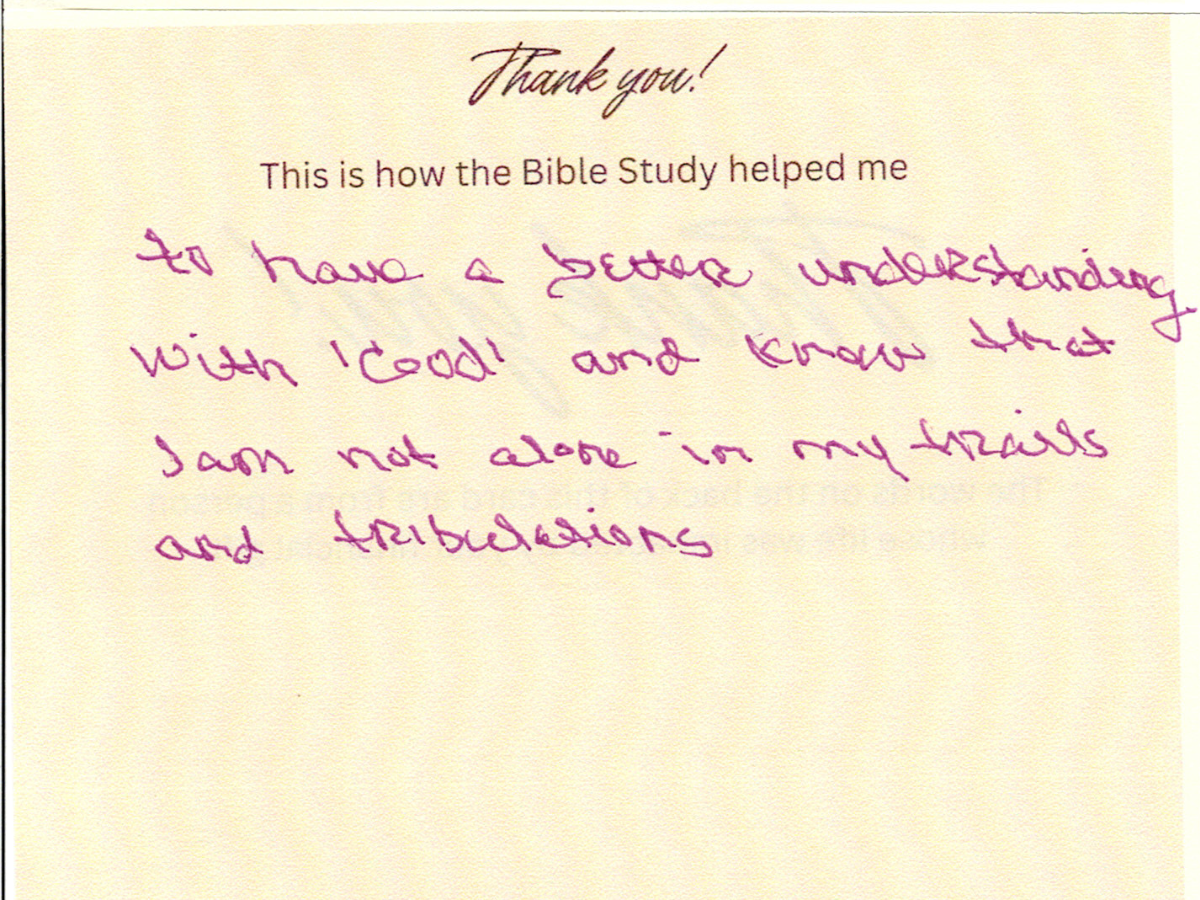 Thank you!
This is how the Bible Study helped me
to have a better understanding
with 'God' and know that
I am not alone in my trails
and tribulations